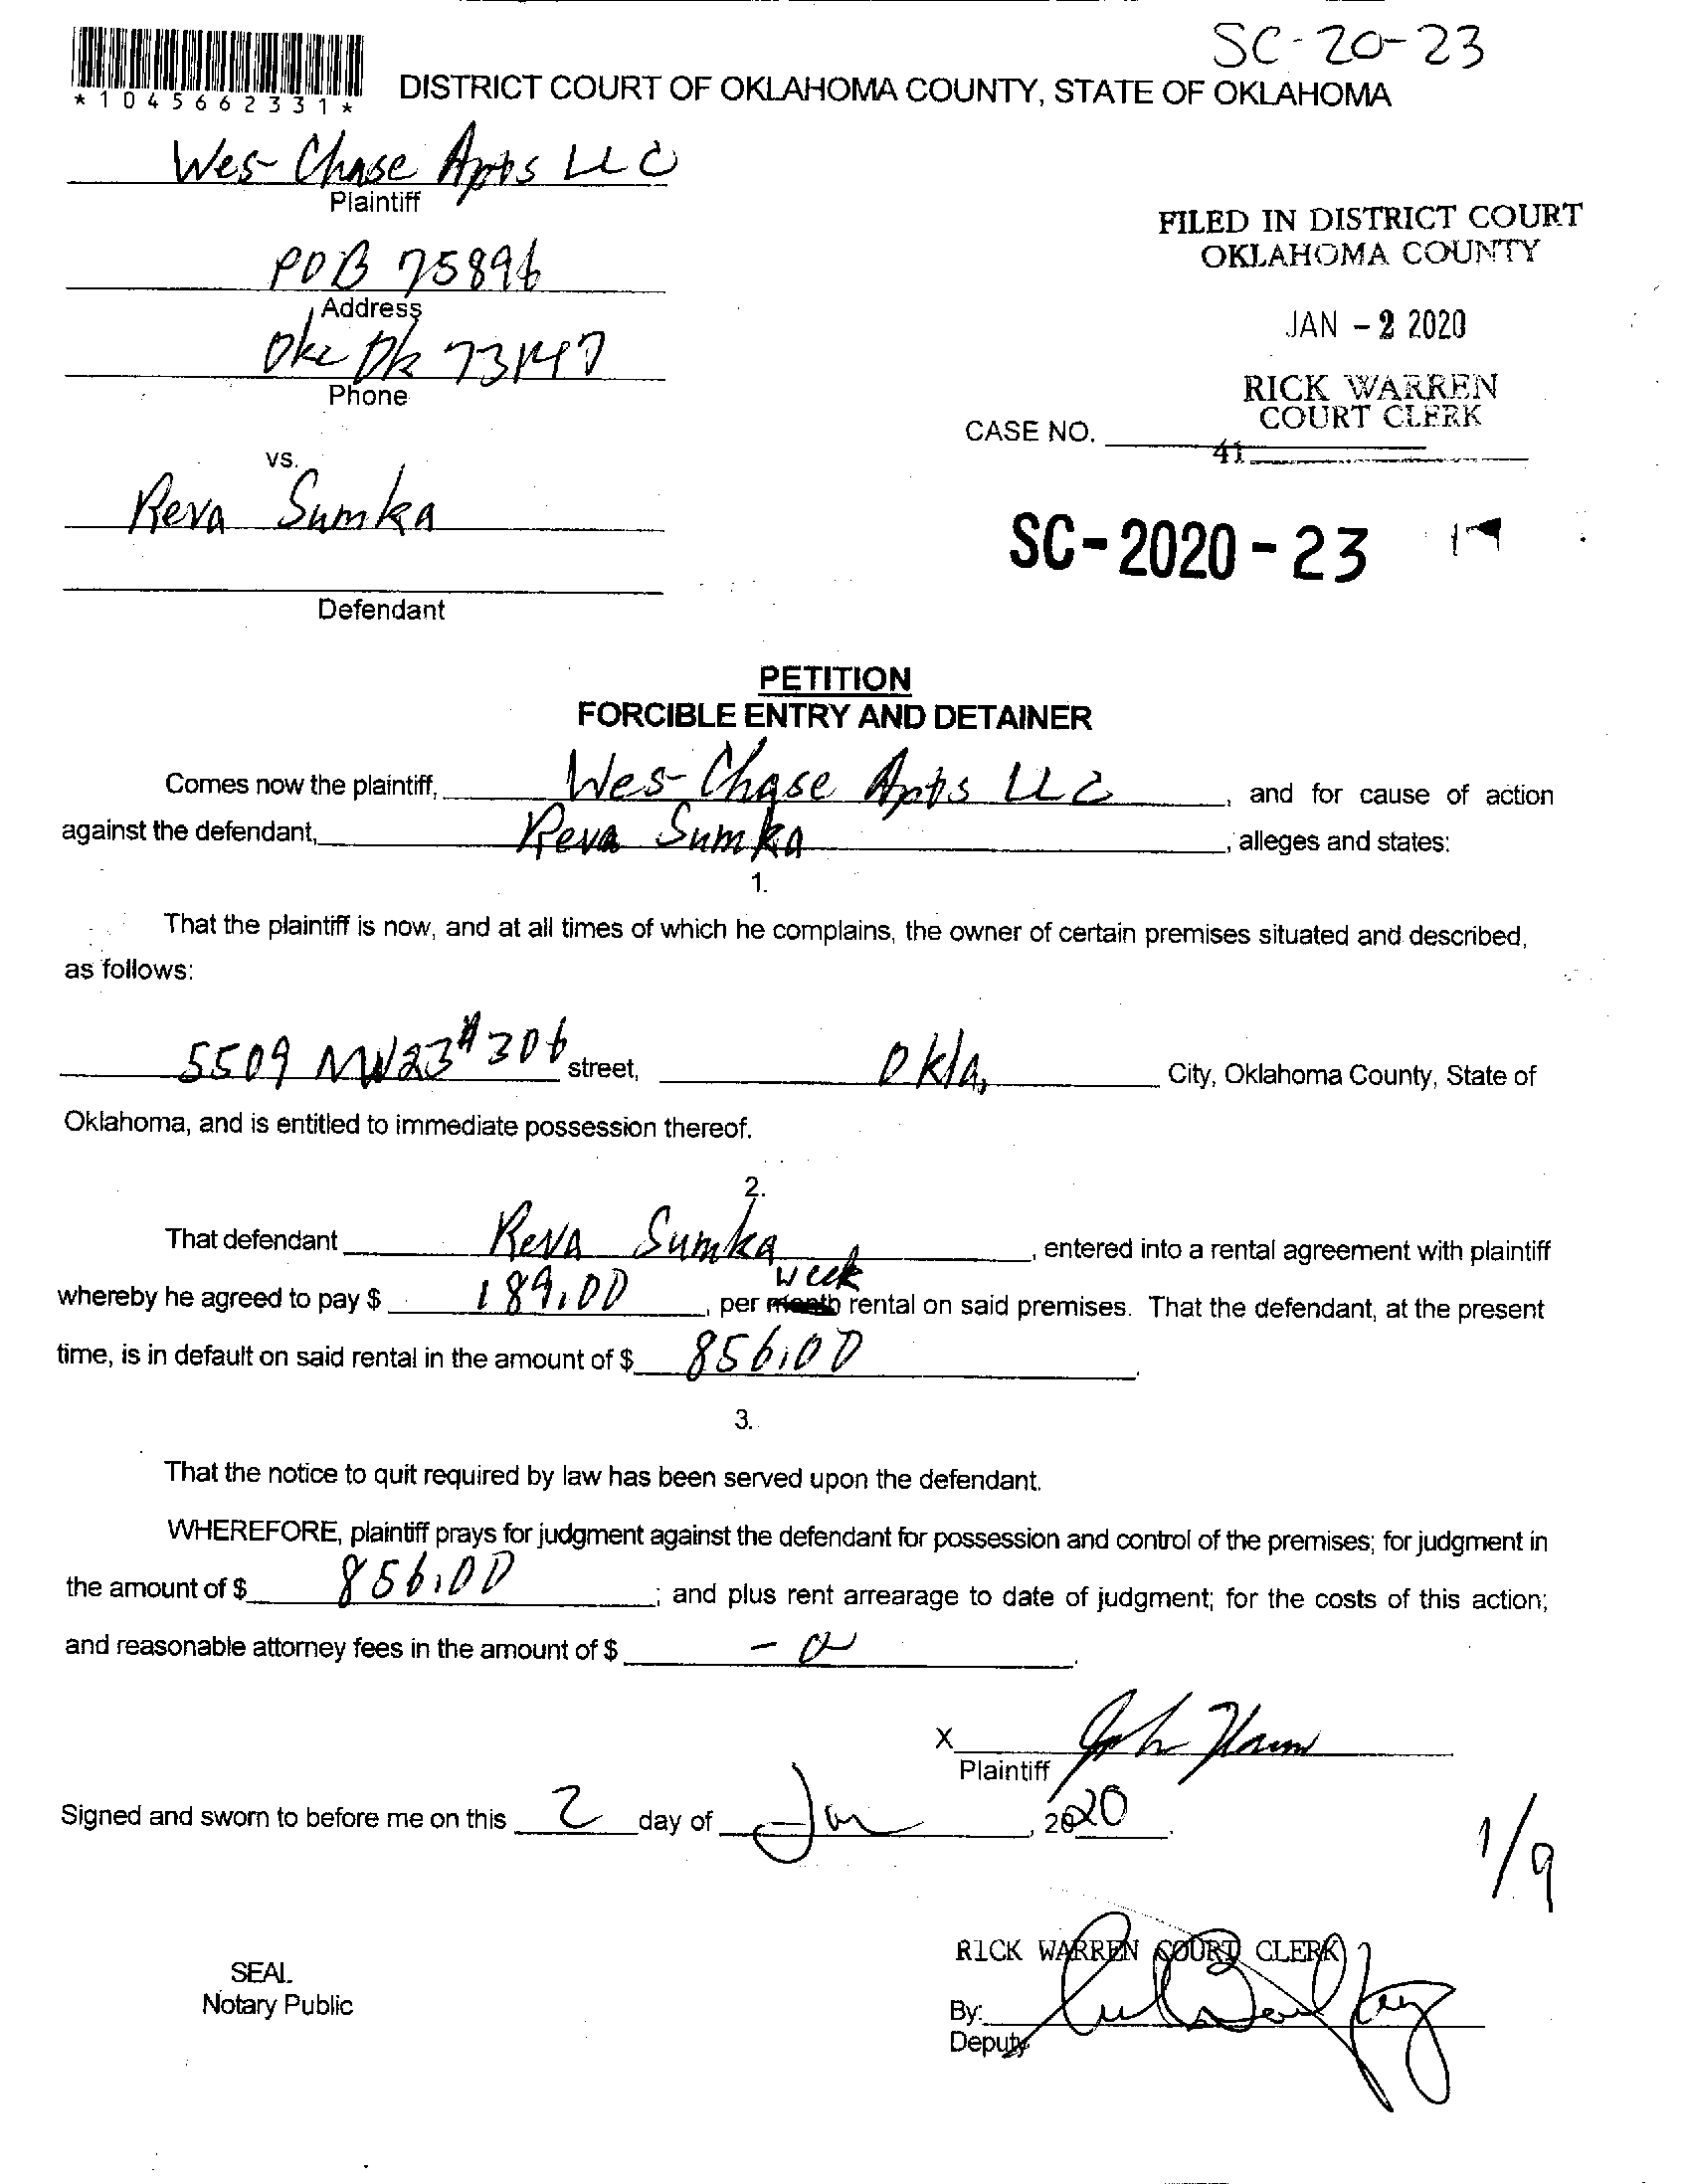 SC-20-23
*1045662331*
DISTRICT COURT OF OKLAHOMA COUNTY, STATE OF OKLAHOMA
Wes-Chase Apts LLC
Plaintiff
POB 75896
Address
Okc Ok 73147
Phone
FILED IN DISTRICT COURT
OKLAHOMA COUNTY
JAN - 2 2020
RICK WARREN
COURT CLERK
CASE NO.
41
vs.
Reva Sumka
SC-2020-23
Defendant
PETITION
FORCIBLE ENTRY AND DETAINER
Comes now the plaintiff, Wes-Chase Apts LLC, and for cause of action
against the defendant, Reva Sumka, alleges and states:
1.
That the plaintiff is now, and at all times of which he complains, the owner of certain premises situated and described,
as follows:
5509 NW23 #306 street, Okla, City, Oklahoma County, State of
Oklahoma, and is entitled to immediate possession thereof.
2.
That defendant Reva Sumka, entered into a rental agreement with plaintiff
week
whereby he agreed to pay $ 189.00, per month rental on said premises. That the defendant, at the present
time, is in default on said rental in the amount of $ 856.00.
3.
That the notice to quit required by law has been served upon the defendant.
WHEREFORE, plaintiff prays for judgment against the defendant for possession and control of the premises; for judgment in
the amount of $ 856.00; and plus rent arrearage to date of judgment; for the costs of this action;
and reasonable attorney fees in the amount of $ -0.
X
Plaintiff
Signed and sworn to before me on this 2 day of Jan, 2020.
1/9
RICK WARREN COURT CLERK
SEAL
Notary Public
By:
Deputy